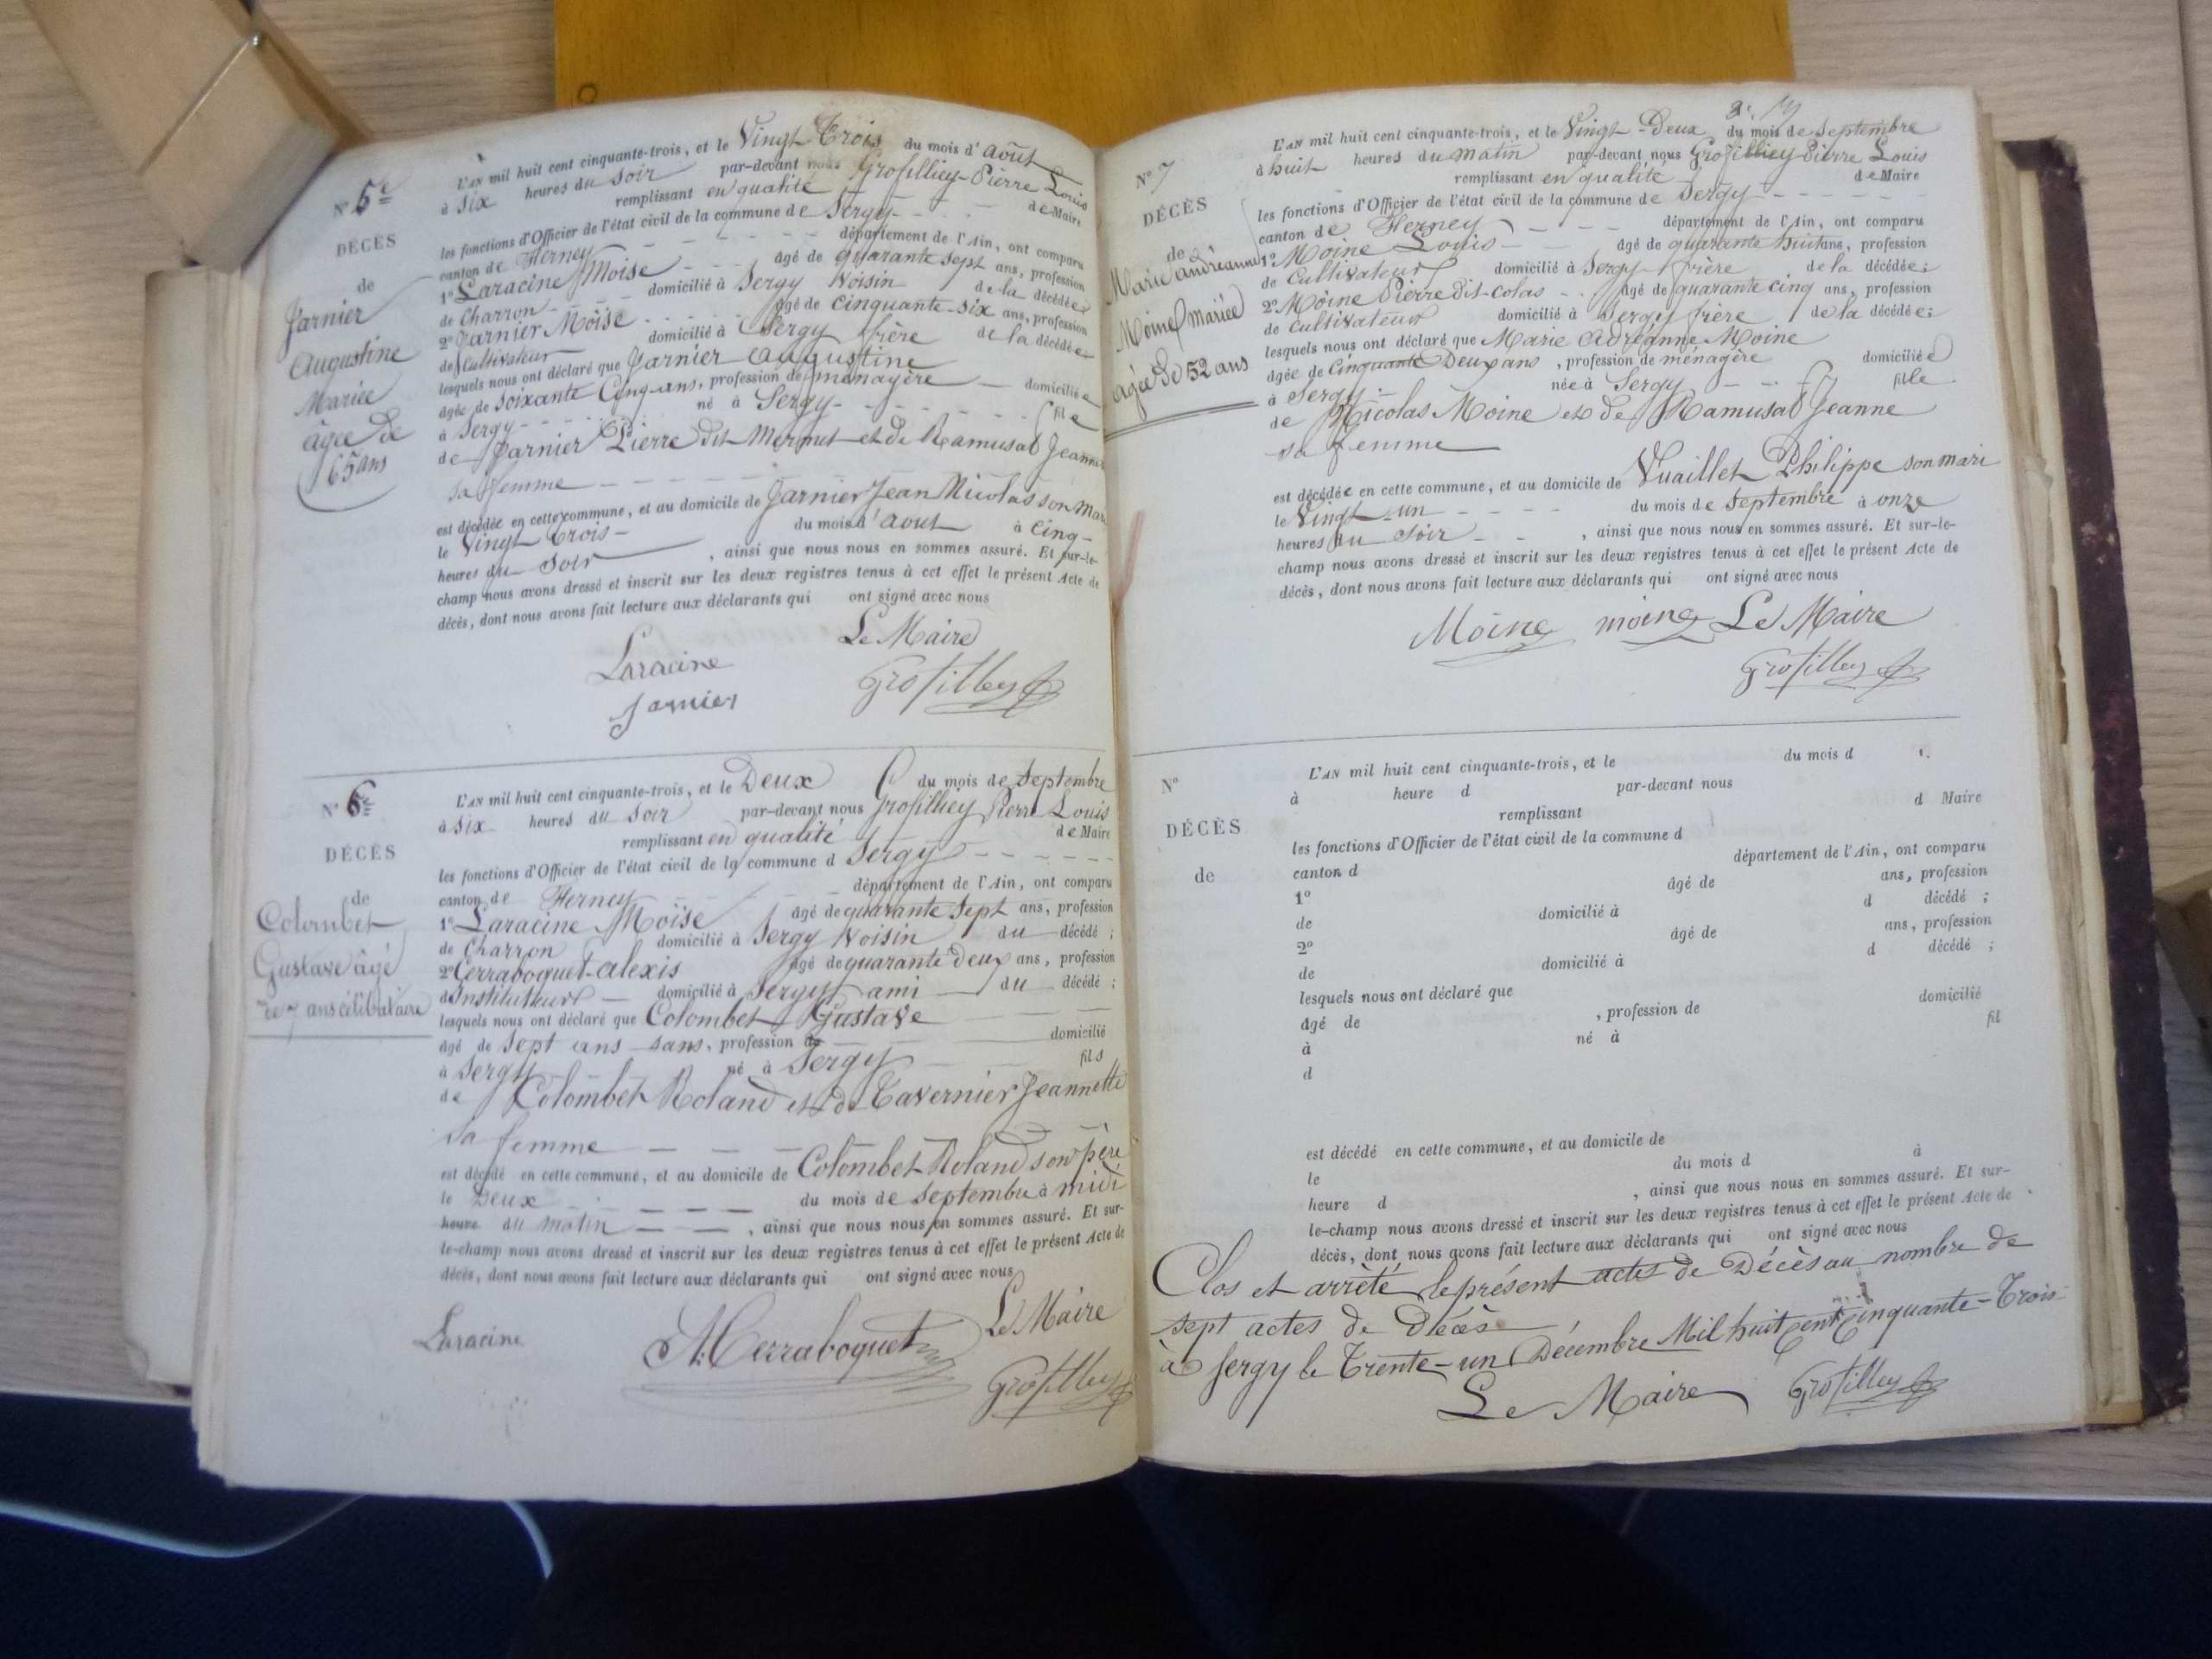 N° 5e
DÉCÈS
de
Jarnier
Augustine
Mariée
âgée de
65 ans
L'AN mil huit cent cinquante-trois, et le Vingt Trois du mois d'août
à six heures du soir par-devant nous Grosfilliey Pierre Louis
remplissant en qualité de Maire
les fonctions d'Officier de l'état civil de la commune de Sergy
canton de Ferney département de l'Ain, ont comparu
1° Laracine Moïse âgé de quarante sept ans, profession
de Charron domicilié à Sergy Voisin de la décédée
2° Jarnier Moïse âgé de cinquante-six ans, profession
de Cultivateur domicilié à Sergy frère de la décédée
lesquels nous ont déclaré que Jarnier augustine
âgée de soixante Cinq ans, profession de ménagère domiciliée
à Sergy né à Sergy fille
de Jarnier Pierre dit Mermet et de Ramusat Jeanne
sa femme
est décédée en cette commune, et au domicile de Jarnier Jean Nicolas son mari
le Vingt Trois du mois d'aout à cinq
heures du soir, ainsi que nous nous en sommes assuré. Et sur-le-
champ nous avons dressé et inscrit sur les deux registres tenus à cet effet le présent Acte de
décès, dont nous avons fait lecture aux déclarants qui ont signé avec nous
Le Maire
Laracine
Jarnier
Grosfilley
N° 6e
DÉCÈS
de
Colombet
Gustave âgé
de 7 ans célibataire
L'AN mil huit cent cinquante-trois, et le Deux du mois de Septembre
à six heures du soir par-devant nous Grosfilliey Pierre Louis
remplissant en qualité de Maire
les fonctions d'Officier de l'état civil de la commune d Sergy
canton de Ferney département de l'Ain, ont comparu
1° Laracine Moïse âgé de quarante sept ans, profession
de Charron domicilié à Sergy Voisin du décédé ;
2° Cerraboquet alexis âgé de quarante deux ans, profession
d'Instituteur domicilié à Sergy ami du décédé ;
lesquels nous ont déclaré que Colombet Gustave
âgé de sept ans sans, profession de domicilié
à Sergy né à Sergy fils
de Colombet Roland et de Tavernier Jeannette
sa femme
est décédé en cette commune, et au domicile de Colombet Roland son père
le Deux du mois de septembre à midi
heure du matin, ainsi que nous nous en sommes assuré. Et sur-
le-champ nous avons dressé et inscrit sur les deux registres tenus à cet effet le présent Acte de
décès, dont nous avons fait lecture aux déclarants qui ont signé avec nous
Le Maire
Laracine
A. Cerraboquet
Grosfilley
N° 7
DÉCÈS
de
Marie andréanne
Moine mariée
agée de 52 ans
L'AN mil huit cent cinquante-trois, et le Vingt-Deux du mois de Septembre
à huit heures du matin par-devant nous Grosfilliey Pierre Louis
remplissant en qualité de Maire
les fonctions d'Officier de l'état civil de la commune de Sergy
canton de Ferney département de l'Ain, ont comparu
1° Moine Louis âgé de quarante huit ans, profession
de Cultivateur domicilié à Sergy frère de la décédée ;
2° Moine Pierre dit-colas âgé de quarante cinq ans, profession
de cultivateur domicilié à Sergy frère de la décédée ;
lesquels nous ont déclaré que Marie Adréanne Moine
âgée de Cinquante Deux ans, profession de ménagère domiciliée
à Sergy née à Sergy fille
de Nicolas Moine et de Ramusat Jeanne
sa femme
est décédée en cette commune, et au domicile de Vuaillet Philippe son mari
le Vingt-un du mois de Septembre à onze
heures du soir, ainsi que nous nous en sommes assuré. Et sur-le-
champ nous avons dressé et inscrit sur les deux registres tenus à cet effet le présent Acte de
décès, dont nous avons fait lecture aux déclarants qui ont signé avec nous
Moine moine Le Maire
Grosfilley
N°
DÉCÈS
de
L'AN mil huit cent cinquante-trois, et le du mois d
à heure d par-devant nous
remplissant d Maire
les fonctions d'Officier de l'état civil de la commune d
canton d département de l'Ain, ont comparu
1° âgé de ans, profession
de domicilié à d décédé ;
2° âgé de ans, profession
de domicilié à d décédé ;
lesquels nous ont déclaré que
âgé de , profession de domicilié
à né à fil
d
est décédé en cette commune, et au domicile de
le du mois d à
heure d , ainsi que nous nous en sommes assuré. Et sur-
le-champ nous avons dressé et inscrit sur les deux registres tenus à cet effet le présent Acte de
décès, dont nous avons fait lecture aux déclarants qui ont signé avec nous
Clos et arrêté le présent actes de Décès au nombre de
sept actes de Décès
à Sergy le Trente-un Décembre Mil huit cent Cinquante-Trois
Le Maire Grosfilley